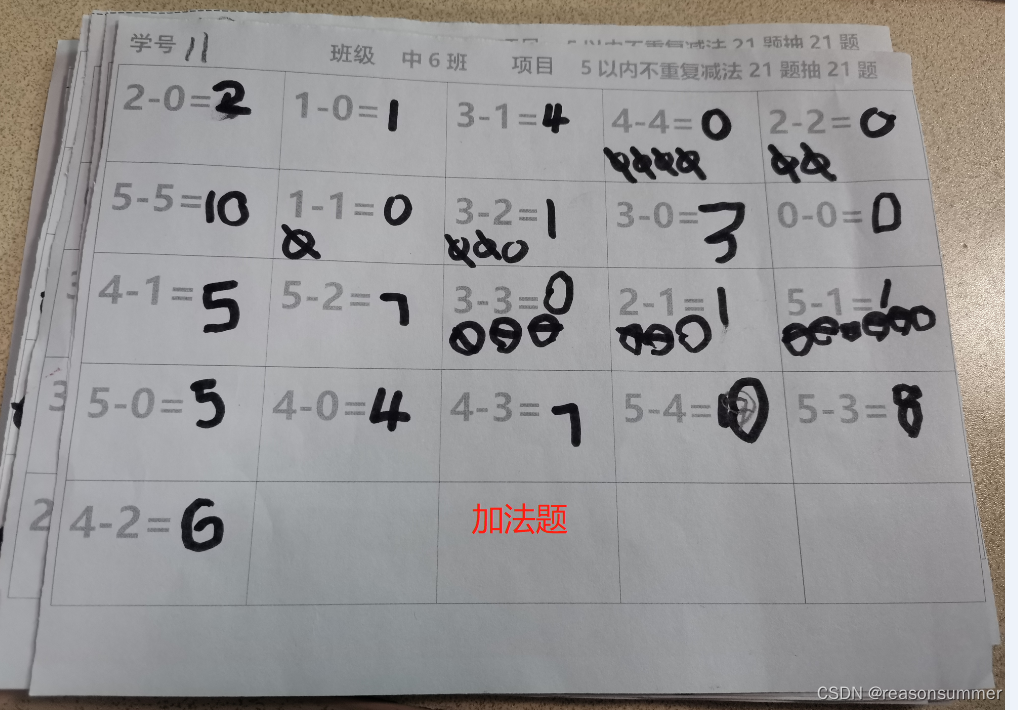 5以内不重复减法21题抽21题
学号 11 班级 中6班 项目 5以内不重复减法21题抽21题
2-0=2 1-0=1 3-1=4 4-4=0 2-2=0
5-5=10 1-1=0 3-2=1 3-0=3 0-0=0
4-1=5 5-2=7 3-3=0 2-1=1 5-1=1
5-0=5 4-0=4 4-3=7 5-4= 5-3=8
4-2=6
加法题
3
3
2
CSDN @reasonsummer